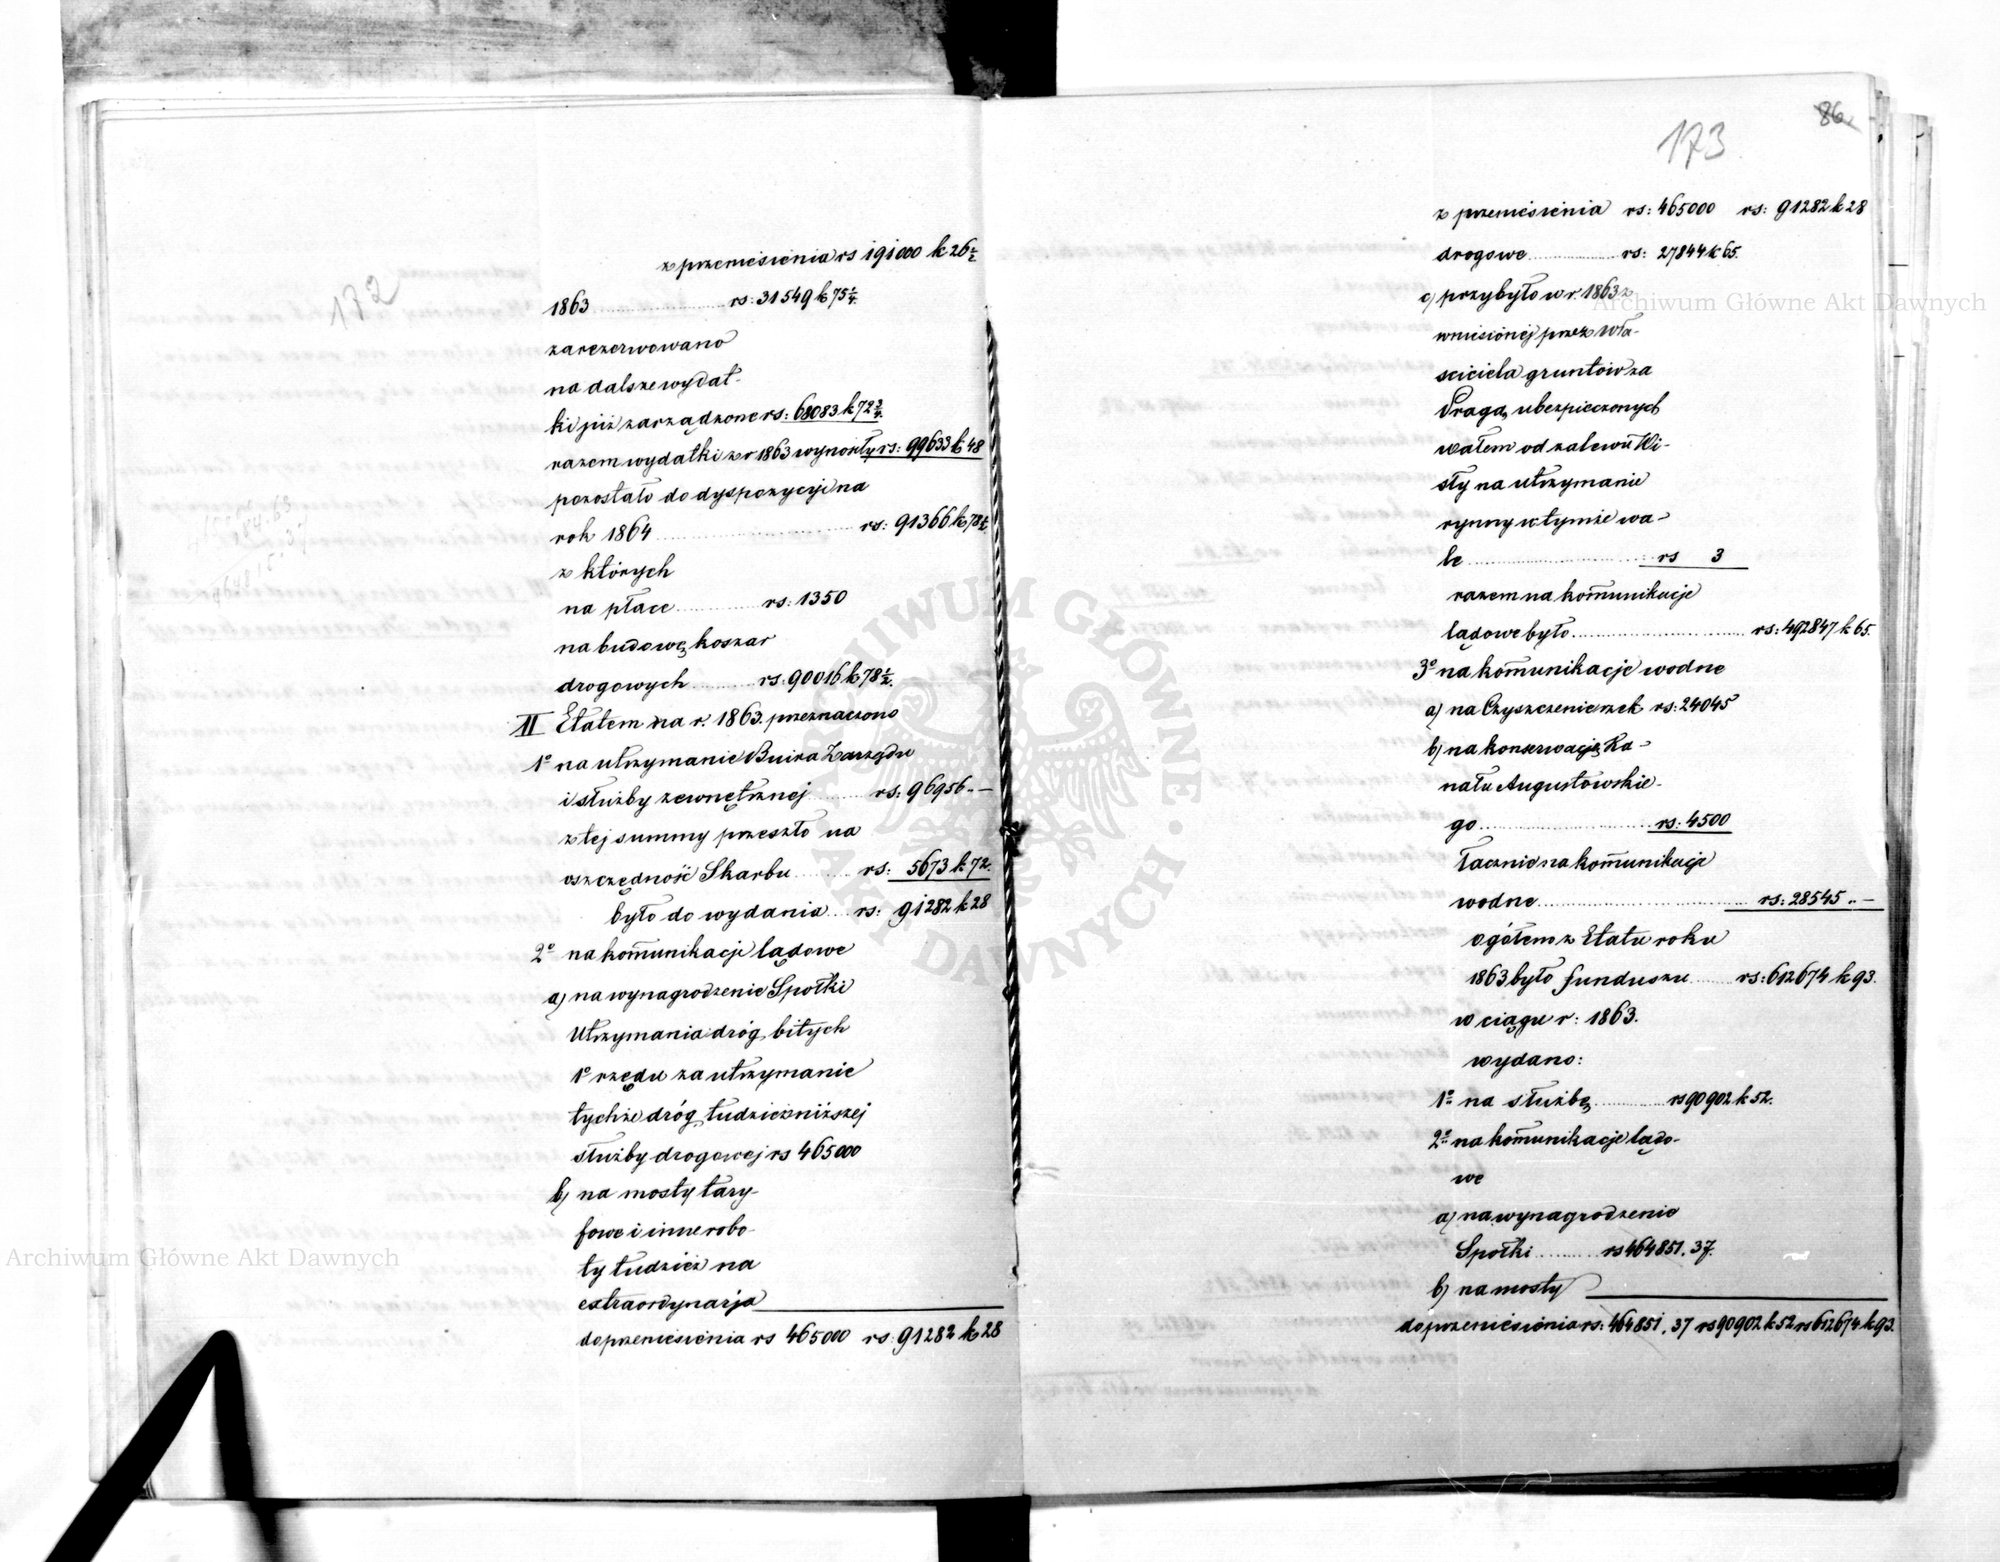 172
z przeniesienia rs 191000 k 26½
1863 rs: 31549 k 75¼.
zarezerwowano
na dalsze wydat-
ki już zarządzone rs: 68083 k 72¾.
razem wydatki z r 1863 wynosiły rs: 99633 k 48
pozostało do dyspozycji na
rok 1864 rs: 91366 k 78½.
z których
na płace rs: 1350
na budowę koszar
drogowych rs: 90016 k 78½.
II Etatem na r. 1863. przeznaczono
1º na utrzymanie Biura Zarządu
i służby zewnętrznej rs: 96956 .. —
z tej summy przeszło na
oszczędność Skarbu rs: 5673 k 72.
było do wydania rs: 91282 k 28
2º na komunikacje lądowe
a) na wynagrodzenie Spółki
Utrzymania dróg bitych
1º rzędu za utrzymanie
tychże dróg, tudzież niższej
służby drogowej rs 465000
b) na mosty tary-
fowe i inne robo-
ty tudzież na
extraordynarja
do przeniesienia rs 465000 rs: 91282 k 28
86.
173
z przeniesienia rs: 465000 rs: 91282 k 28
drogowe rs: 27844 k 65.
c) przybyło w r. 1863 z
wniesionéj przez Wła-
ściciela gruntów za
Pragą, ubezpieczonych
wałem od zalewu Wi-
sły na utrzymanie
rynny w tymże wa-
le rs 3
razem na komunikacje
lądowe było rs: 492847 k 65.
3º na komunikacje wodne
a) na Czyszczenie rzek rs: 24045
b) na konserwację Ka-
nału Augustowskie-
go rs: 4500
łącznie na komunikacje
wodne rs: 28545 .. —
ogółem z Etatu roku
1863 było funduszu rs: 612674 k 93.
w ciągu r: 1863.
wydano:
1º na służbę rs 90902 k 52.
2º na komunikacje lądo-
we
a) na wynagrodzenie
Spółki rs 464851. 37.
b) na mosty
do przeniesienia rs: 464851. 37 rs 90902 k 52 rs 612674 k 93.
Archiwum Główne Akt Dawnych
Archiwum Główne Akt Dawnych
ARCHIWUM GŁÓWNE AKT DAWNYCH